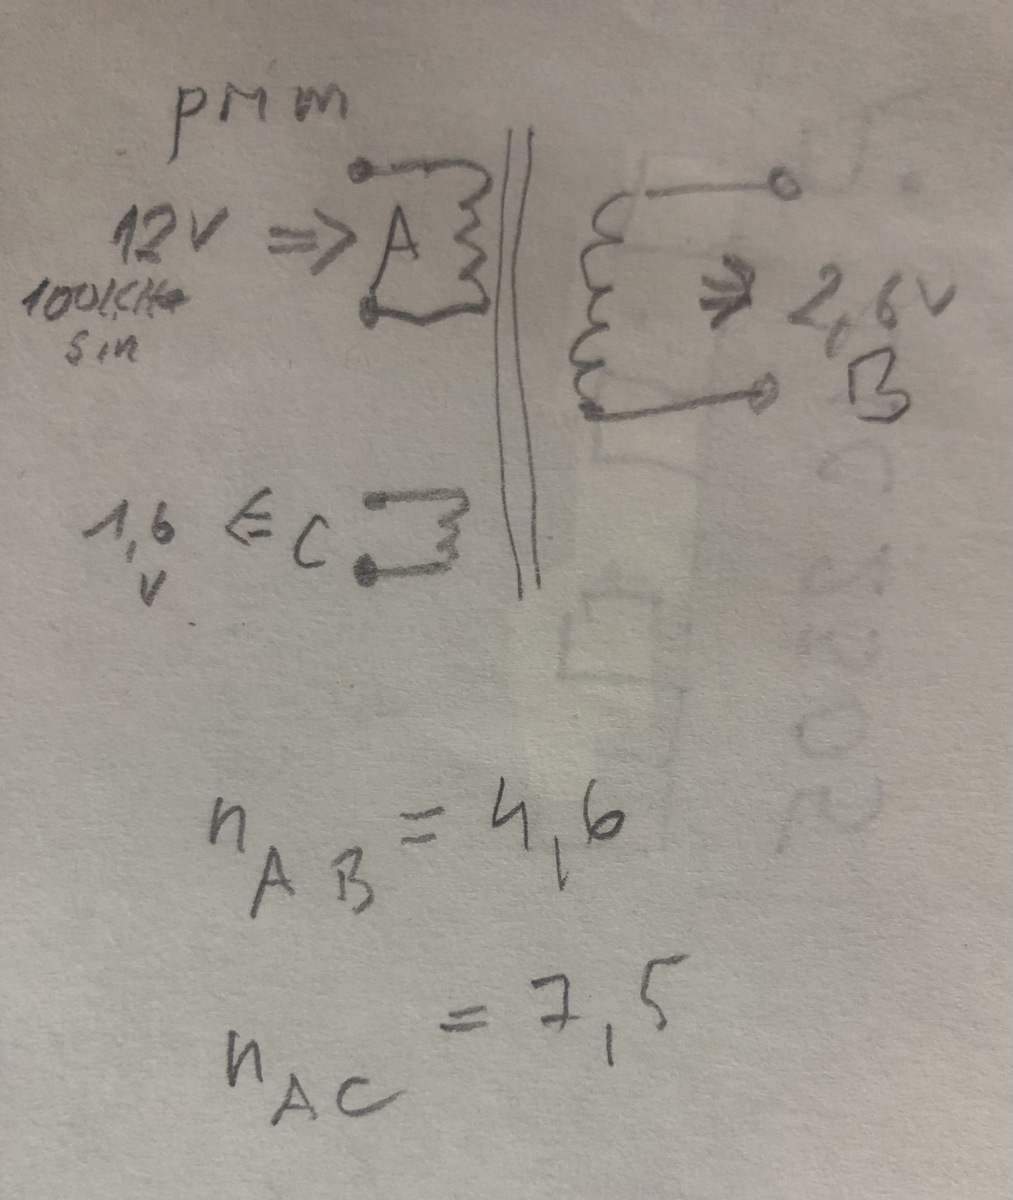 prim
12V => A
100kHz
sin
=> 2,6V
B
1,6 <= C
V
n AB = 4,6
n AC = 7,5